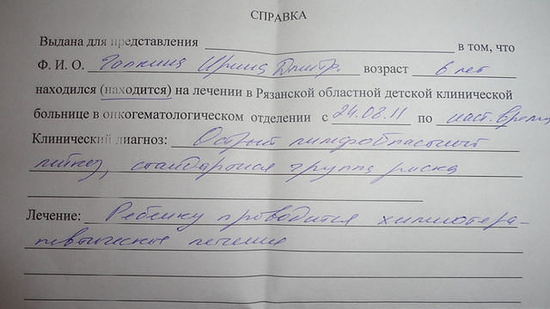 СПРАВКА
Выдана для представления в том, что
Ф. И. О. Галкина Ирина Дмитр. возраст 6 лет
находился (находится) на лечении в Рязанской областной детской клинической
больнице в онкогематологическом отделении с 24.08.11 по наст. время
Клинический диагноз: Острый лимфобластный
лейкоз, стандартная группа риска
Лечение: Ребенку проводится химиотера-
певтическое лечение